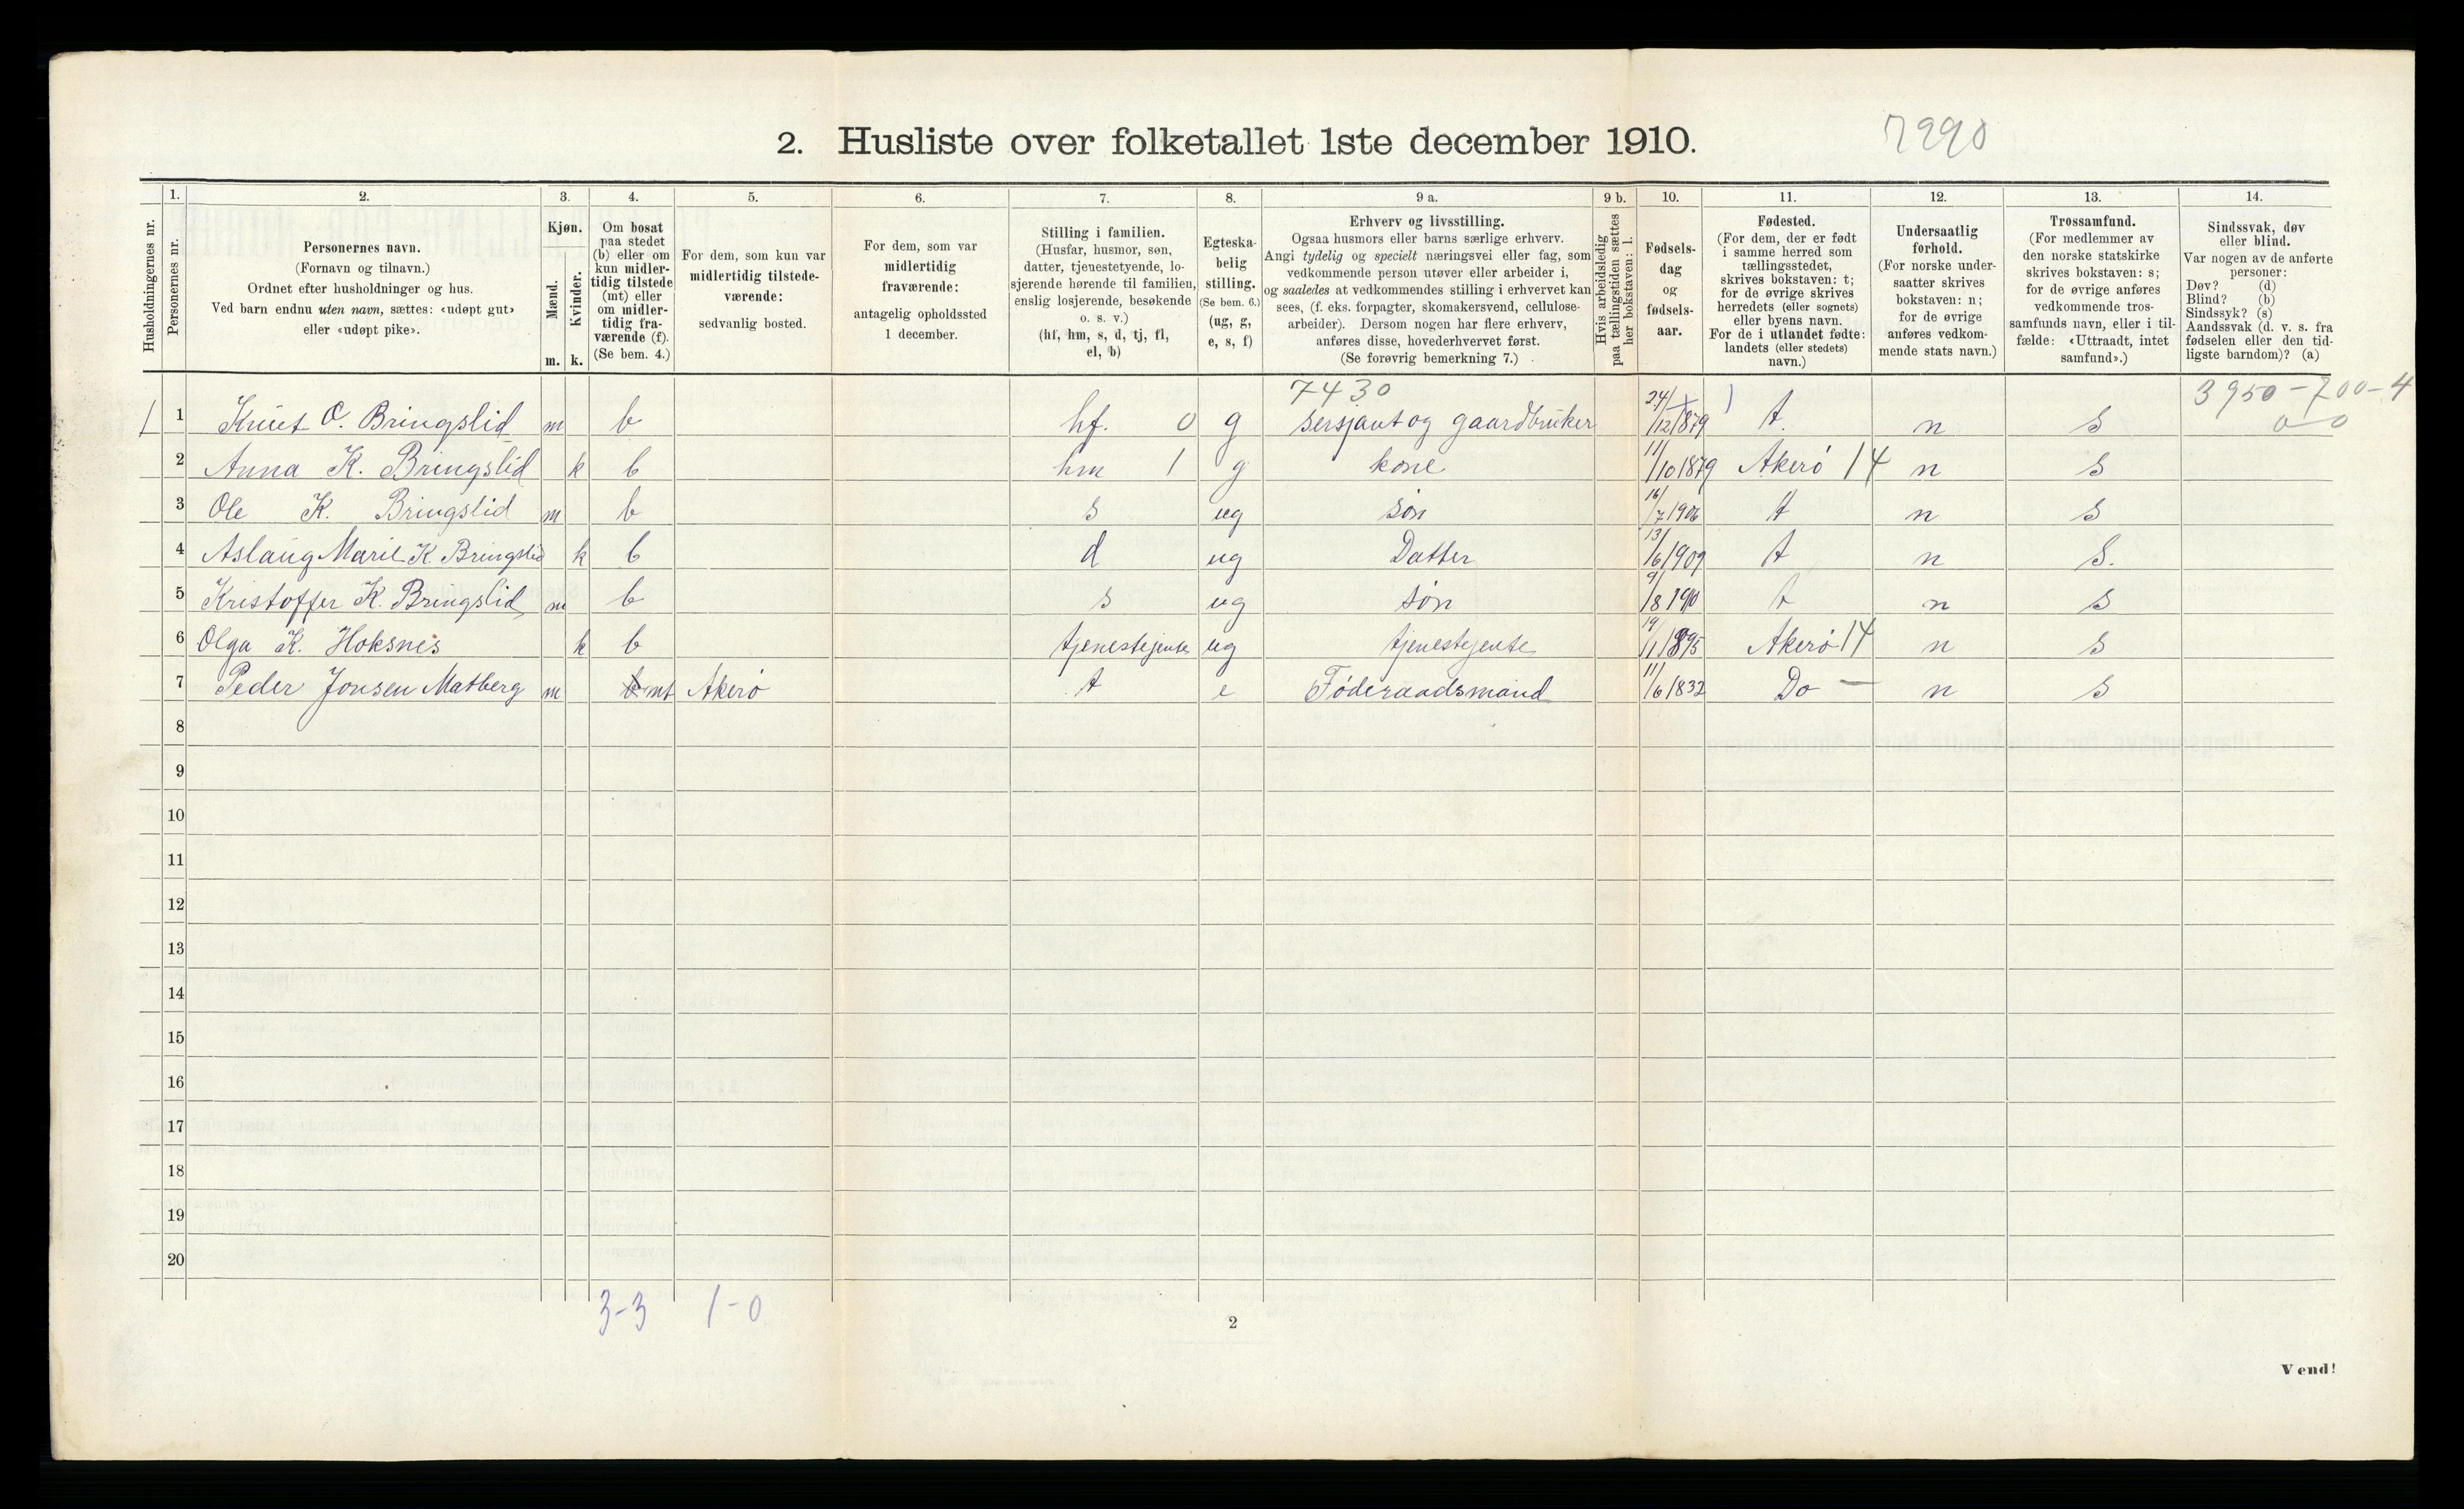 2. Husliste over folketallet 1ste december 1910.
7290
1. 2. 3. 4. 5. 6. 7. 8. 9 a. 9 b. 10. 11. 12. 13. 14.
Husholdningernes nr.
Personernes nr.
Personernes navn.
(Fornavn og tilnavn.)
Ordnet efter husholdninger og hus.
Ved barn endnu uten navn, sættes: «udøpt gut»
eller «udøpt pike».
Kjøn.
Mænd.
m.
Kvinder.
k.
Om bosat
paa stedet
(b) eller om
kun midler-
tidig tilstede
(mt) eller
om midler-
tidig fra-
værende (f).
(Se bem. 4.)
For dem, som kun var
midlertidig tilstede-
værende:
sedvanlig bosted.
For dem, som var
midlertidig
fraværende:
antagelig opholdssted
1 december.
Stilling i familien.
(Husfar, husmor, søn,
datter, tjenestetyende, lo-
sjerende hørende til familien,
enslig losjerende, besøkende
o. s. v.)
(hf, hm, s, d, tj, fl,
el, b)
Egteska-
belig
stilling.
(Se bem. 6.)
(ug, g,
e, s, f)
Erhverv og livsstilling.
Ogsaa husmors eller barns særlige erhverv.
Angi tydelig og specielt næringsvei eller fag, som
vedkommende person utøver eller arbeider i,
og saaledes at vedkommendes stilling i erhvervet kan
sees, (f. eks. forpagter, skomakersvend, cellulose-
arbeider). Dersom nogen har flere erhverv,
anføres disse, hovederhvervet først.
(Se forøvrig bemerkning 7.)
Hvis arbeidsledig
paa tællingstiden sættes
her bokstaven: l.
Fødsels-
dag
og
fødsels-
aar.
Fødested.
(For dem, der er født
i samme herred som
tællingsstedet,
skrives bokstaven: t;
for de øvrige skrives
herredets (eller sognets)
eller byens navn.
For de i utlandet fødte:
landets (eller stedets)
navn.)
Undersaatlig
forhold.
(For norske under-
saatter skrives
bokstaven: n;
for de øvrige
anføres vedkom-
mende stats navn.)
Trossamfund.
(For medlemmer av
den norske statskirke
skrives bokstaven: s;
for de øvrige anføres
vedkommende tros-
samfunds navn, eller i til-
fælde: «Uttraadt, intet
samfund».)
Sindssvak, døv
eller blind.
Var nogen av de anførte
personer:
Døv? (d)
Blind? (b)
Sindssyk? (s)
Aandssvak (d. v. s. fra
fødselen eller den tid-
ligste barndom)? (a)
7430 3950-700-4
1 1 Knut O. Bringslid m b hf. 0 g sersjant og gaardbruker 24/12 1879 t. n s 0-0
2 Anna K. Bringslid k b hm 1 g kone 11/10 1879 Akerö 14 n s
3 Ole K. Bringslid m b s ug søn 16/7 1906 t n s
4 Aslaug Marie K. Bringslid k b d ug Datter 13/6 1909 t n s.
5 Kristoffer K. Bringslid m b s ug søn 9/8 1910 t n s
6 Olga K. Hoksnes k b tjenestejente ug tjenestejente 19/1 1895 Akerö 14 n s
7 Peder Jonsen Matberg m b mt Akerö t e Föderaadsmand 11/6 1832 Do — n s
8
9
10
11
12
13
14
15
16
17
18
19
20
3-3 1-0
2
Vend!